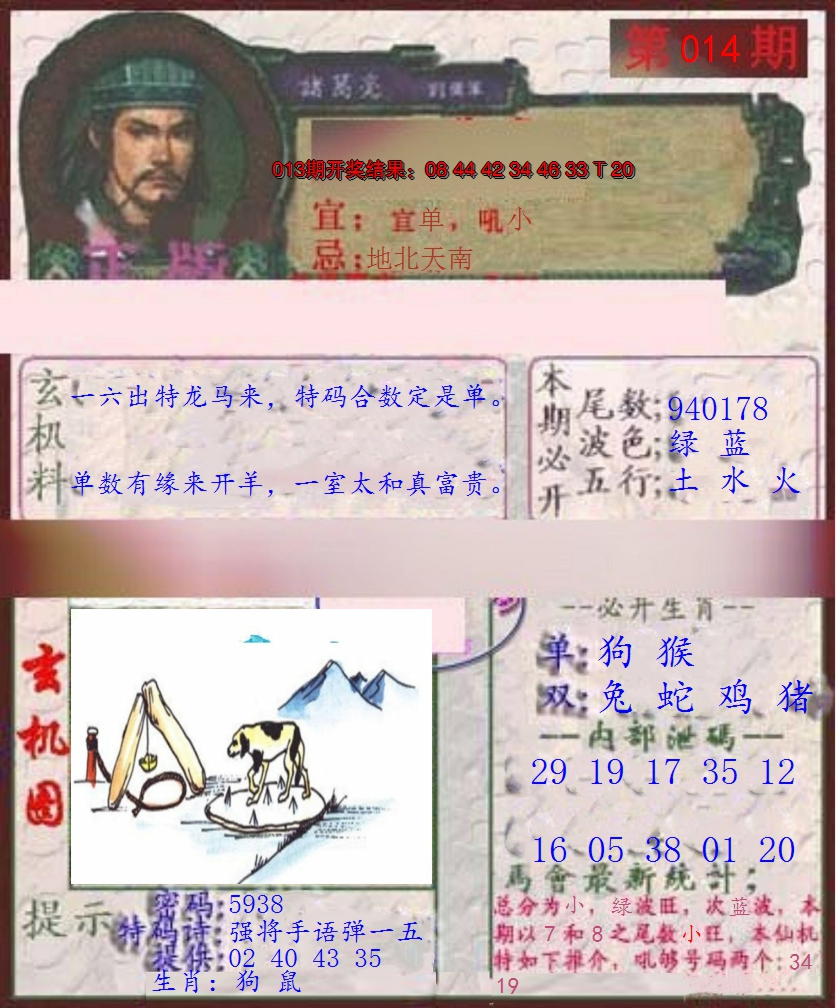 第 014 期
諸葛亮
013期开奖结果：08 44 42 34 46 33 T 20
宜；宜单，吼小
忌；地北天南
正版
玄机料
一六出特龙马来，特码合数定是单。
单数有缘来开羊，一室太和真富贵。
本期必开
尾数；940178
波色；绿 蓝
五行；土 水 火
玄机图
--必开生肖--
单：狗 猴
双：兔 蛇 鸡 猪
一内部泄碼一
29 19 17 35 12
16 05 38 01 20
馬會最新統計；
总分为小，绿波旺，次蓝波，本
期以7和8之尾数小旺，本仙机
特如下推介，吼够号码两个：34
19
提示
密码：5938
特码诗：强将手语弹一五
提供：02 40 43 35
生肖：狗 鼠